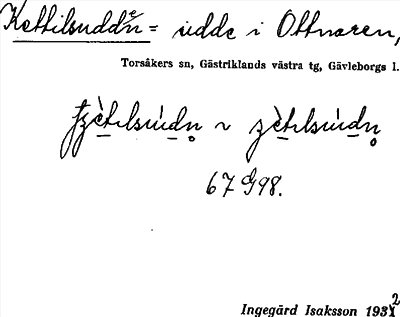 Kettilsudden = udde i Ottnaren,
Torsåkers sn, Gästriklands västra tg, Gävleborgs l.
67 G 98.
Ingegärd Isaksson 1932